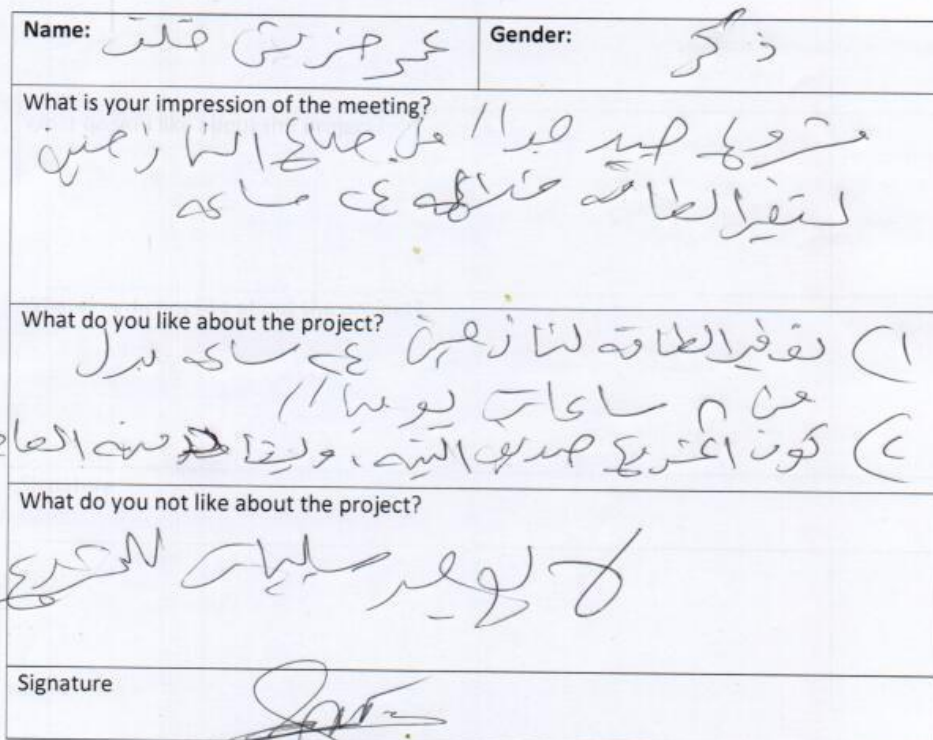 Name: عمر
Gender: ذكر
What is your impression of the meeting?
مشروع جيد جدا // من صالح النازحين
لتوفير الطاقة خلال ٢٤ ساعه
What do you like about the project?
١) توفير الطاقه للنازحين ٢٤ ساعه بدل
من ٨ ساعات يوميا //
٢) كون المشروع صديق البيئه،
What do you not like about the project?
لا يوجد سلبيات للمشروع
Signature